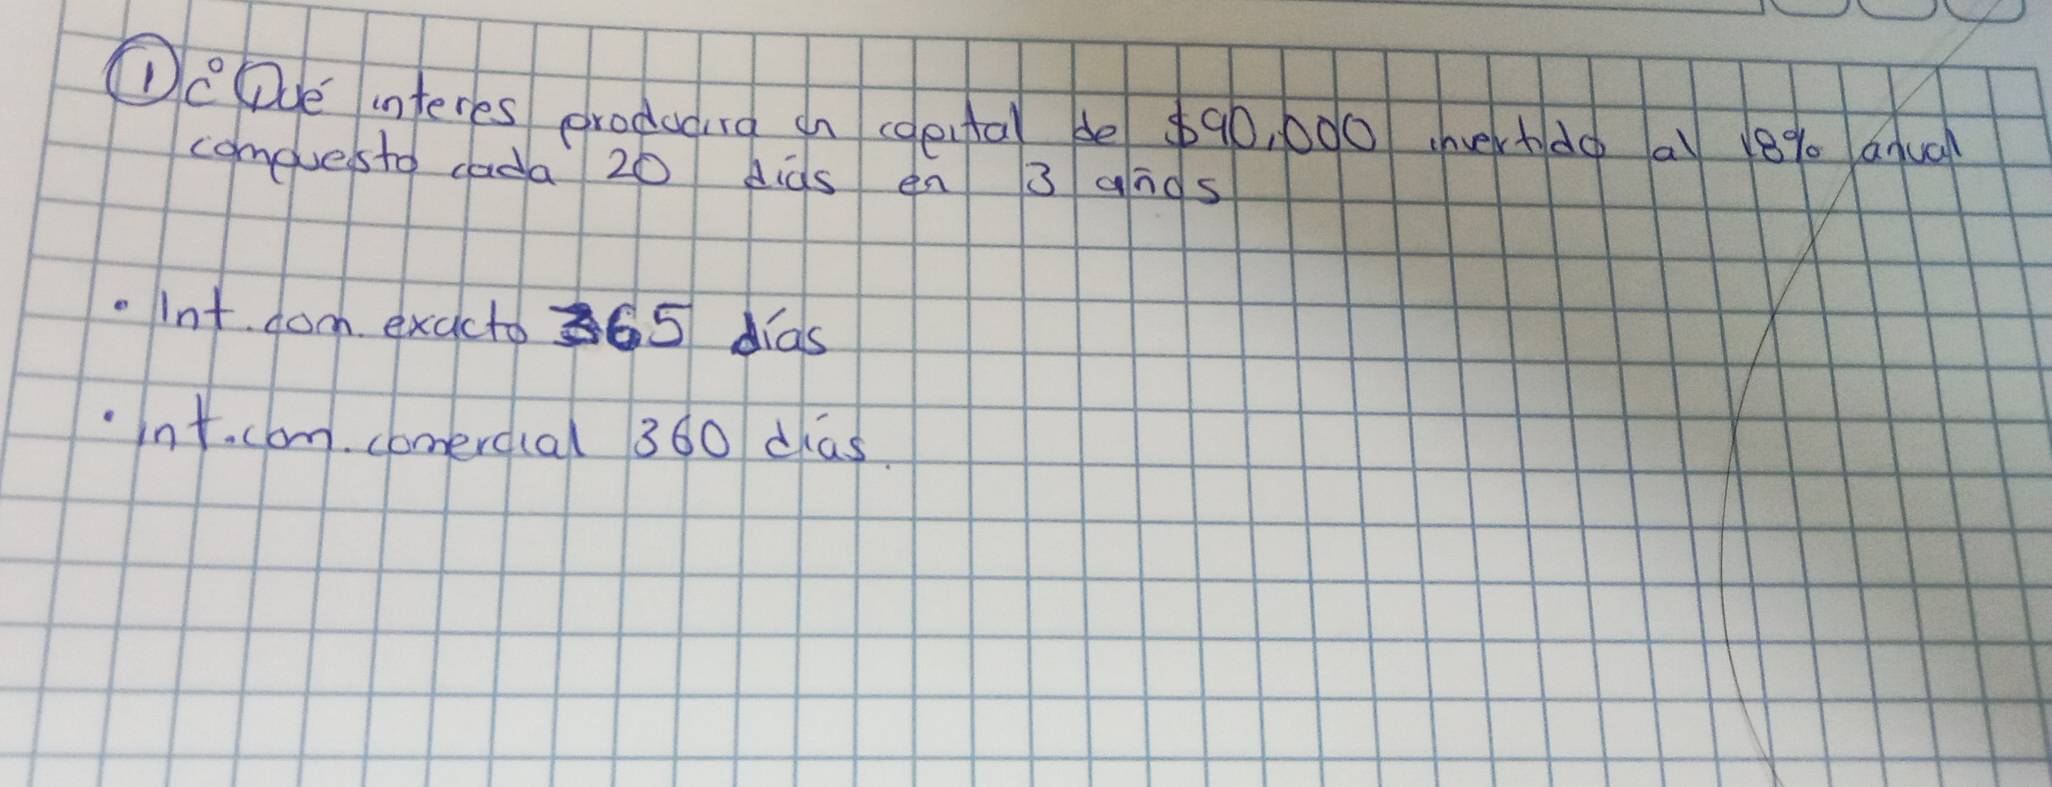 ① ¿Qué interes producira un capital de $90,000 invertido al 18% anual
compuesto cada 20 días en 3 años
• Int. com. exacto 365 días
• Int. com. comercial 360 días.